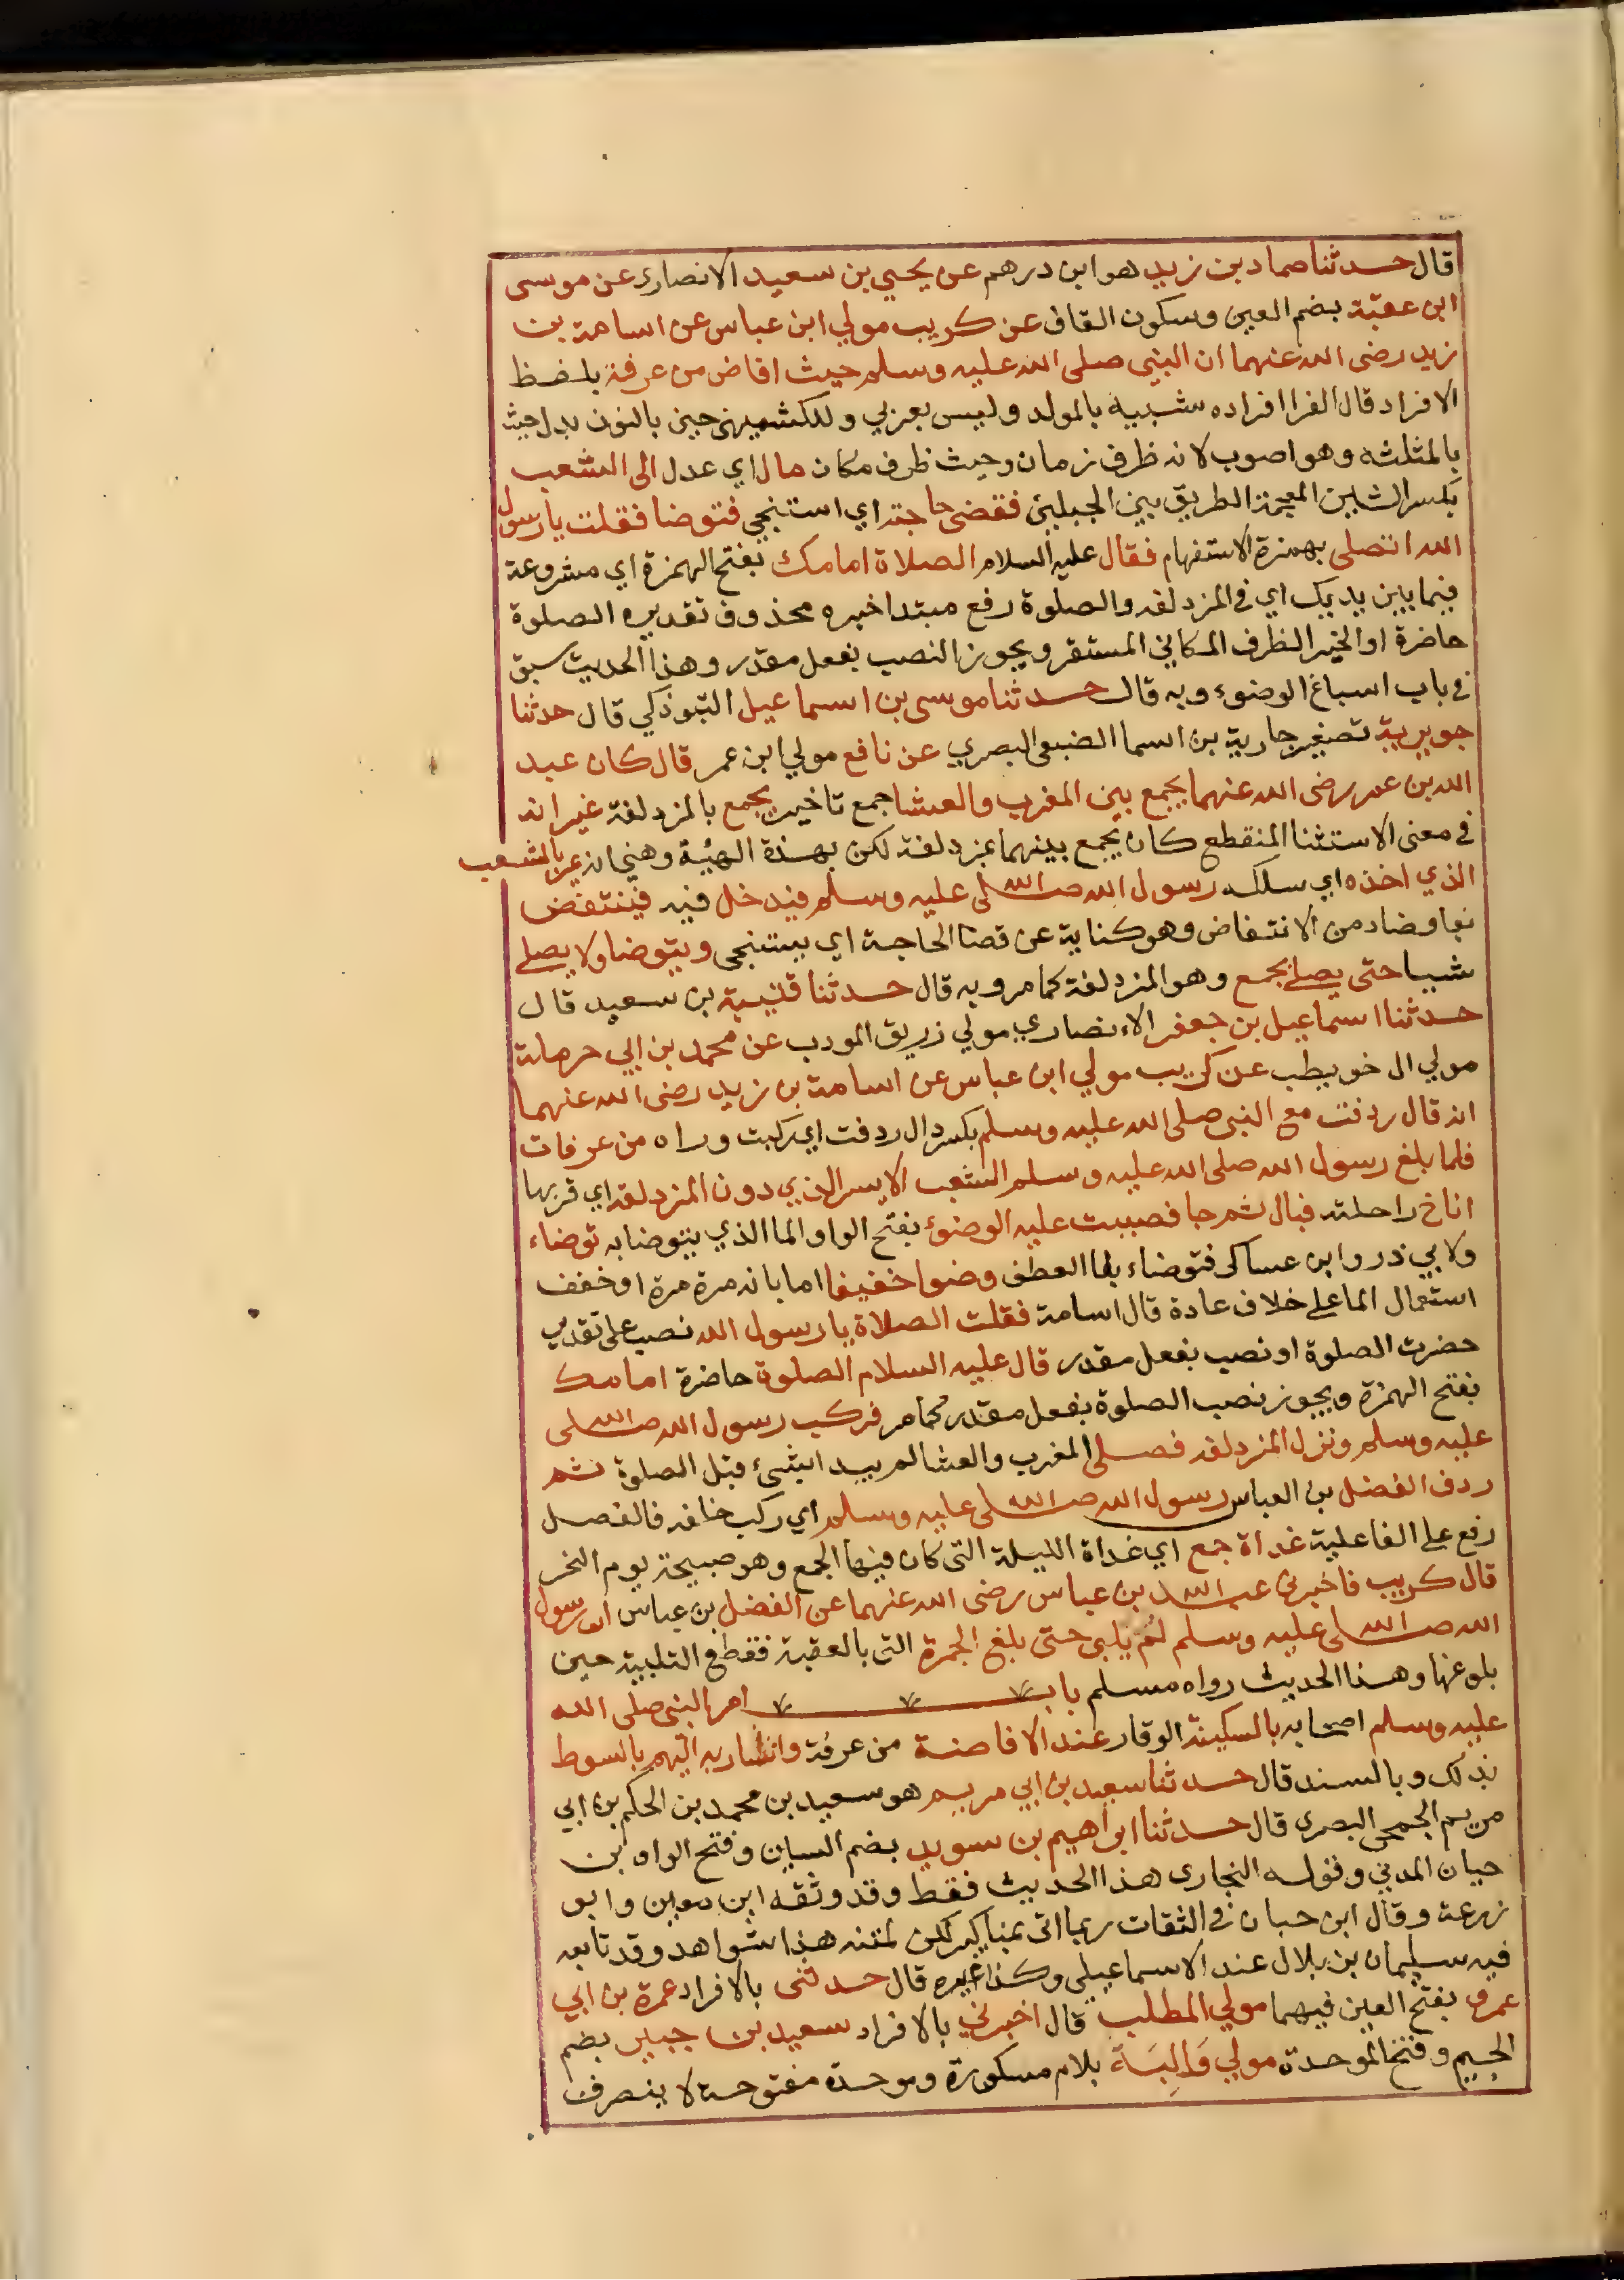 قال حدثنا حماد بن زيد هو ابن درهم عن يحيي بن سعيد الانصاري عن موسى
ابن عقبة بضم العين وسكون القاف عن كريب مولي ابن عباس عن اسامة بن
زيد رضى الله عنهما ان النبي صلى الله عليه وسلم حيث افاض من عرفة بلفظ
الافراد قال الفرا افراده شبيه بالمولد وليس بعربي وللكشميهني حين بالنون بدل حيث
بالمثلثه وهو اصوب لانه ظرف زمان وحيث ظرف مكان مال اي عدل الى الشعب
بكسر الشين المعجمة الطريق بين الجبلين فقضى حاجته اي استنجي فتوضا فقلت يا رسول
الله اتصلى بهمزة الاستفهام فقال عليه السلام الصلاة امامك بفتح الهمزة اي مشروعة
فيما بين يديك اي في المزدلفه والصلوة رفع مبتدا خبره محذوف تقديره الصلوة
حاضرة او الخبر الظرف المكاني المستقر ويجوز النصب بفعل مقدر وهذا الحديث سبق
في باب اسباغ الوضوء وبه قال حدثنا موسى بن اسماعيل التبوذكي قال حدثنا
جويرية تصغير جارية بن اسما الضبعي البصري عن نافع مولي ابن عمر قال كان عبد
الله بن عمر رضى الله عنهما يجمع بين المغرب والعشا جمع تاخير بجمع بالمزدلفة غير انه
في معنى الاستثنا المنقطع كان يجمع بينهما بمزدلفة لكن بهذة الهيئة وهي انه يمر بالشعب
الذي اخذه اي سلكه رسول الله صلى الله عليه وسلم فيدخل فيه فينتفض
بفا وضاد من الانتفاض وهو كناية عن قضا الحاجة اي يستنجي ويتوضا ولا يصلي
شيا حتى يصلي بجمع وهو المزدلفة كما مر وبه قال حدثنا قتيبة بن سعيد قال
حدثنا اسماعيل بن جعفر الانصاري مولي زريق المودب عن محمد بن ابي حرملة
مولي ال خويطب عن كريب مولي ابن عباس عن اسامة بن زيد رضى الله عنهما
انه قال ردفت مع النبي صلى الله عليه وسلم بكسر دال ردفت اي ركبت وراه من عرفات
فلما بلغ رسول الله صلى الله عليه وسلم الشعب الايسر الذي دون المزدلفه اي قربها
اناخ راحلته فبال ثم جا فصببت عليه الوضوء بفتح الواو الما الذي يتوضا به توضاء
ولابي ذر وابن عساكر فتوضاء بفا العطف وضوا خفيفا اما بانه مرة مرة او خفف
استعمال الما علي خلاف عادة قال اسامة فقلت الصلاة يا رسول الله نصب على تقدير
حضرت الصلوة او نصب بفعل مقدر قال عليه السلام الصلوة حاضرة امامك
بفتح الهمزة ويجوز نصب الصلوة بفعل مقدر كما مر فركب رسول الله صلى الله
عليه وسلم ونزل المزدلفه فصلى المغرب والعشا لم يبدا بشيء قبل الصلوة ثم
ردف الفضل بن العباس رسول الله صلى الله عليه وسلم اي ركب خلفه فالفضل
رفع على الفاعلية غداة جمع اي غداة الليلة التي كان فيها الجمع وهو صبيحة يوم النحر
قال كريب فاخبرني عبد الله بن عباس رضى الله عنهما عن الفضل بن عباس ان رسول
الله صلى الله عليه وسلم لم يلبي حتى بلغ الجمرة التي بالعقبة فقطع التلبية حين
بلوغها وهذا الحديث رواه مسلم باب امر النبي صلى الله
عليه وسلم اصحابه بالسكينة الوقار عند الافاضة من عرفة واشاربه اليهم بالسوط
بذلك وبالسند قال حدثنا سعيد بن ابي مريم هو سعيد بن محمد بن الحكم بن ابي
مريم الجمحي البصري قال حدثنا ابراهيم بن سويد بضم السين وفتح الواو بن
حبان المدني وقوله البخاري هذا الحديث فقط وقد وثقه ابن معين وابو
زرعة وقال ابن حبان في الثقات ربما اتى بمناكير لكن لمتنه هذا شواهد وقد تابعه
فيه سليمان بن بلال عند الاسماعيلي وكذا غيره قال حدثنى بالافراد عمرة بن ابي
عمرو بفتح العين فيهما مولي المطلب قال اخبرني بالافراد سعيد بن جبير بضم
الجيم وفتح الموحدة مولي وَالِبَةَ بلام مسكورة وموحدة مفتوحة لا ينصرف